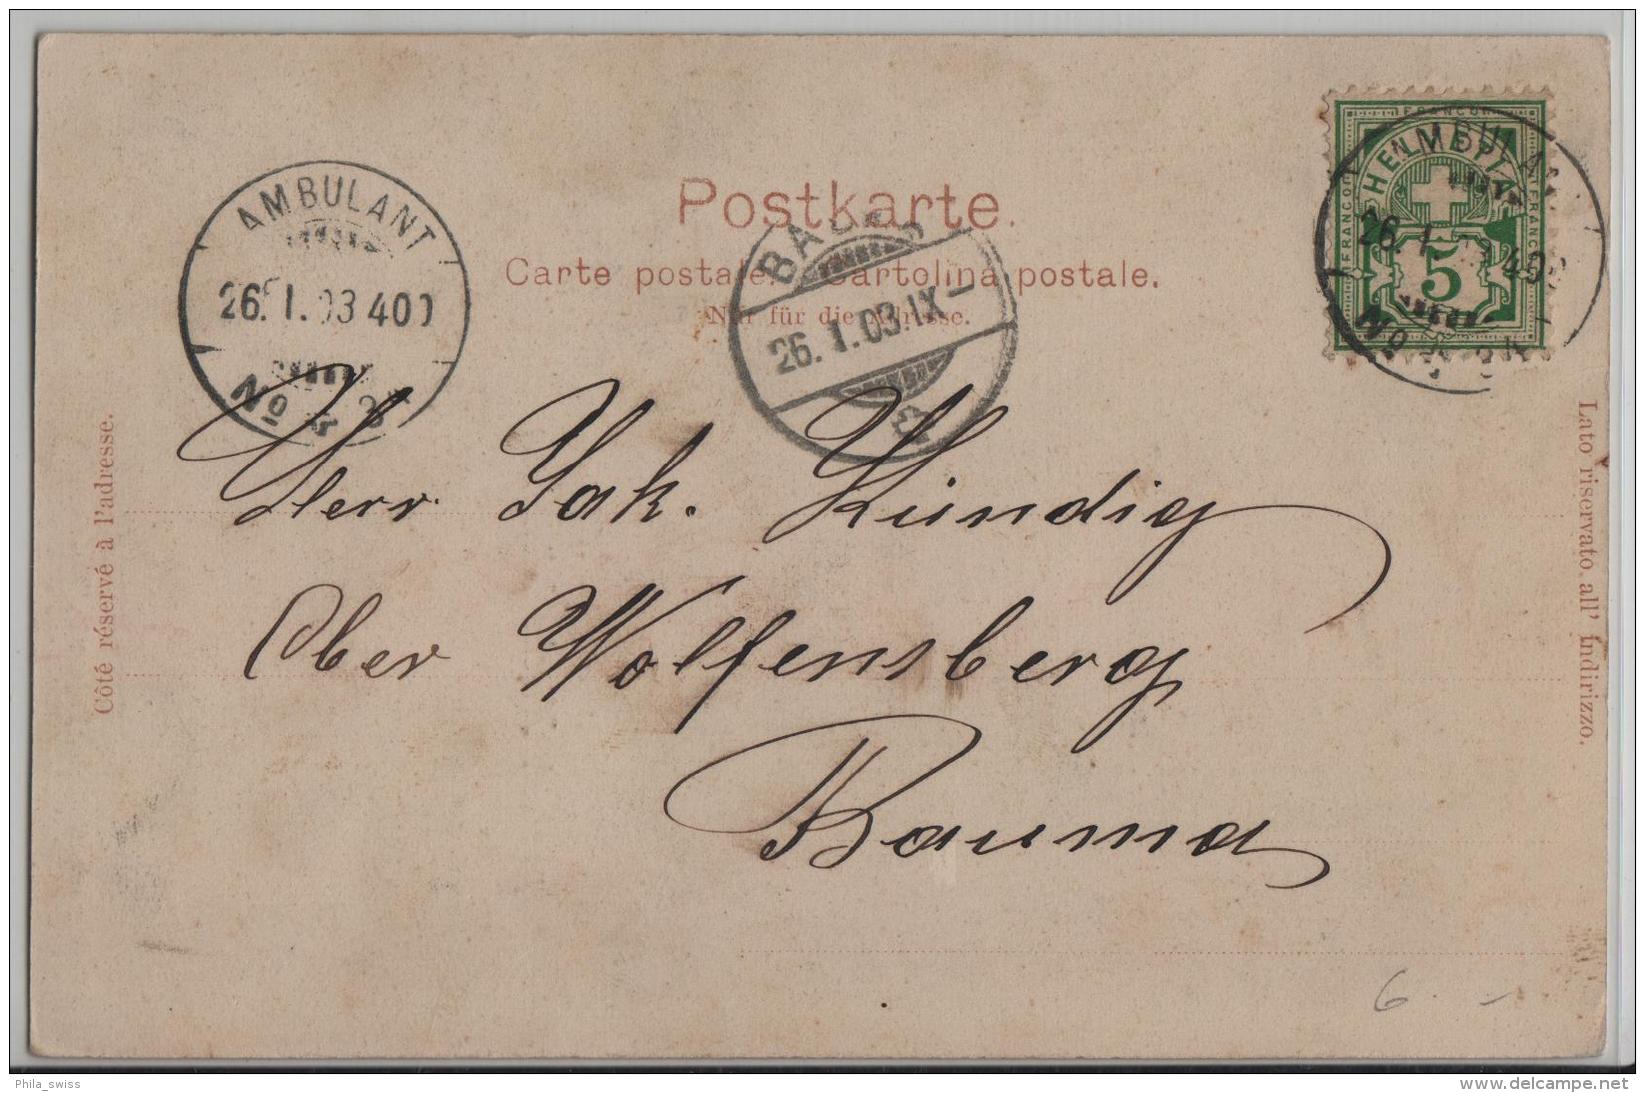 AMBULANT
26. I. 03 400
No
Postkarte.
Carte postale. Cartolina postale.
Nur für die Adresse.
26. I. 03. IX –
FRANCO
HELVETIA
FRANCO
FRANCO
5
AMBULANT
26. I. 03 400
No
Côté réservé à l'adresse.
Lato riservato all' Indirizzo.
Herr Jak. Kündig
Ober Wolfensberg
Bauma
6. –
Phila_swiss
www.delcampe.net